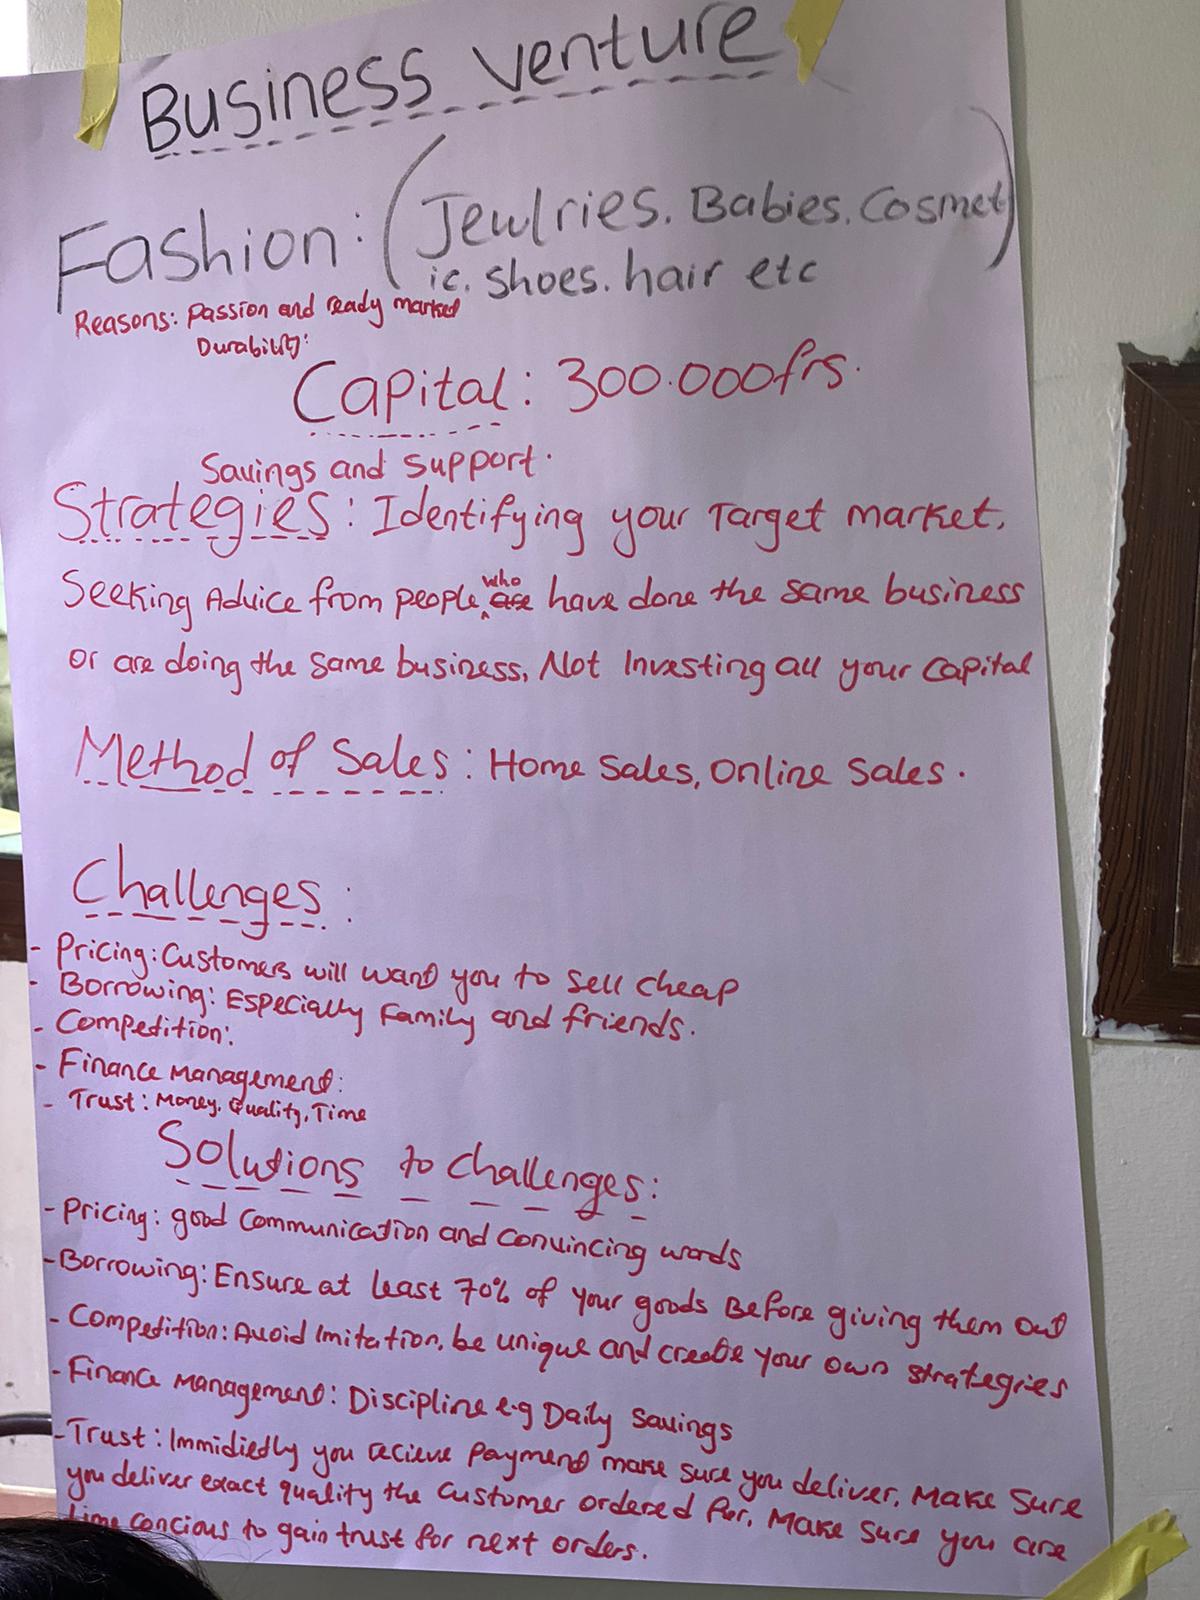 Business Venture
Fashion: (Jewlries. Babies. Cosmet
ic. shoes. hair etc)
Reasons: Passion and ready market
Durability:
Capital: 300.000frs.
Savings and support.
Strategies: Identifying your Target market.
Seeking Advice from people who are have done the same business
or are doing the same business, Not Investing all your capital
Method of Sales: Home Sales, Online Sales.
Challenges:
- Pricing: Customers will want you to sell cheap
- Borrowing: Especially Family and friends.
- Competition:
- Finance Management:
- Trust: Money, Quality, Time
Solutions to challenges:
- Pricing: good Communication and Convincing words
- Borrowing: Ensure at least 70% of your goods Before giving them out
- Competition: Avoid Imitation, be unique and create your own strategies
- Finance Management: Discipline e.g Daily Savings
- Trust: Immidiedly you recieve payment make sure you deliver, Make Sure
you deliver exact quality the customer ordered for, Make Sure you are
time concious to gain trust for next orders.